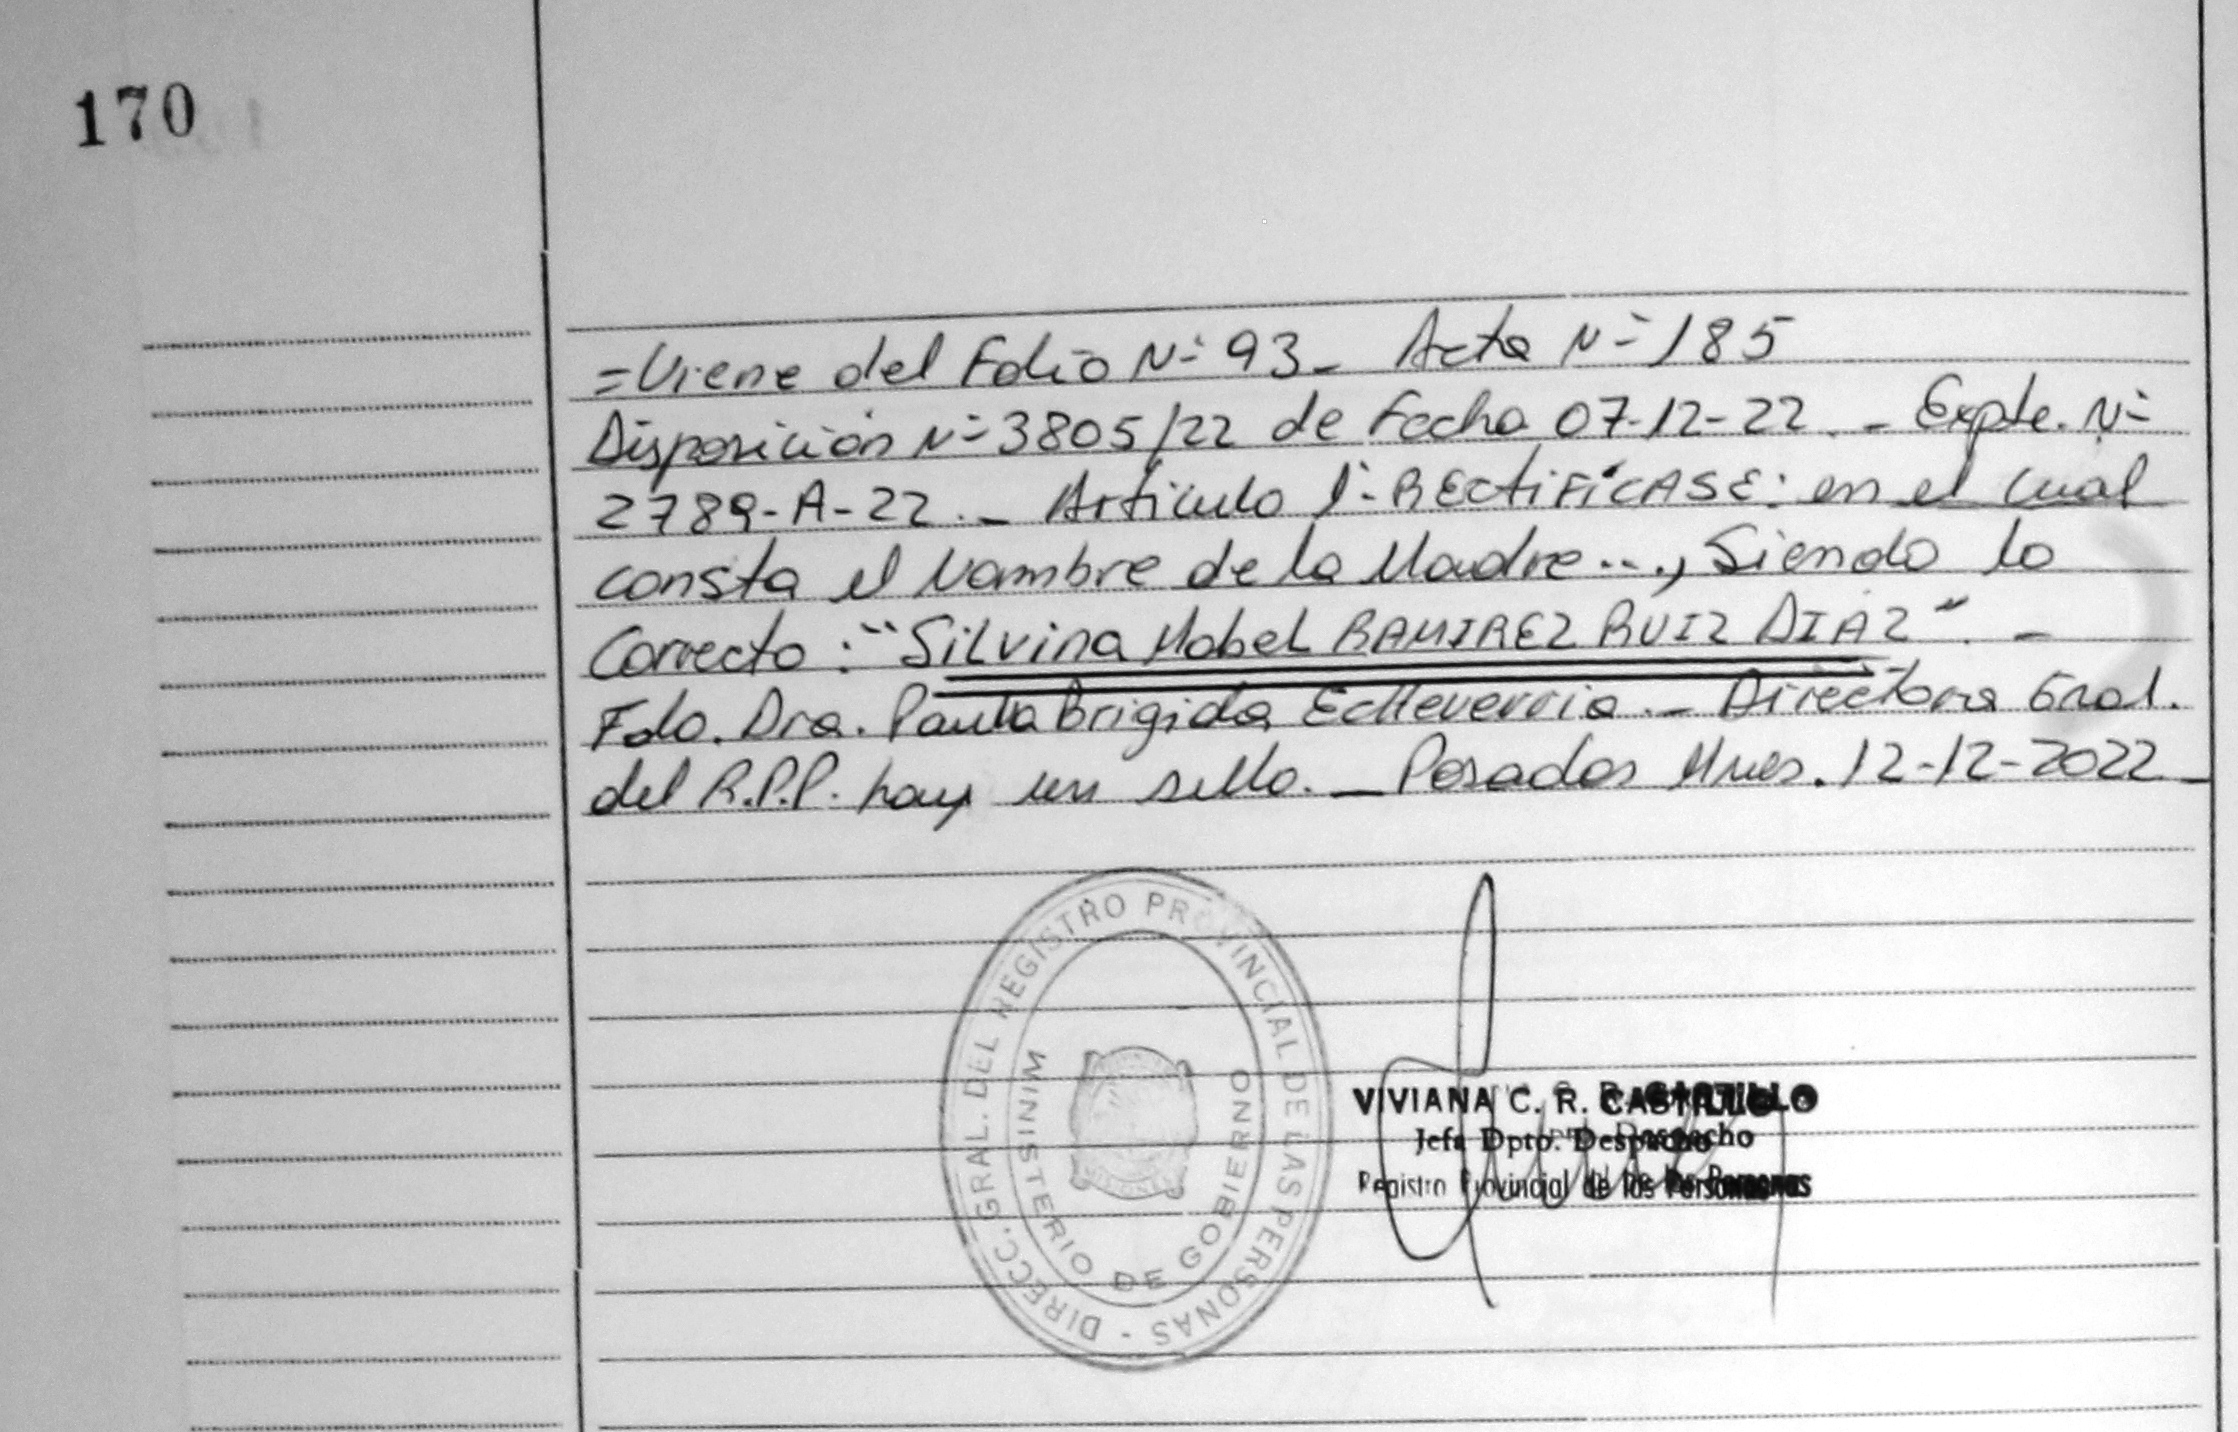 170
=Viene del Folio N- 93_ Acta N- 185
Disposición N- 3805/22 de Fecha 07-12-22._ Expte. N-
2789-A-22._ Artículo 1- RECtiFICASE: en el cual
consta el Nombre de la Madre..., Siendo lo
Correcto: "Silvina Mabel RAMIREZ RUIZ DIAZ". _
Fdo. Dra. Paula Brigida Echeverria._ Directora Gral.
del R.P.P. hay un sello._ Posadas Mnes. 12-12-2022_
DIRECC. GRAL. DEL REGISTRO PROVINCIAL DE LAS PERSONAS -
MINISTERIO DE GOBIERNO
MISIONES
VIVIANA C. R. CASTILLO
Jefa Dpto. Despacho
Registro Provincial de las Personas